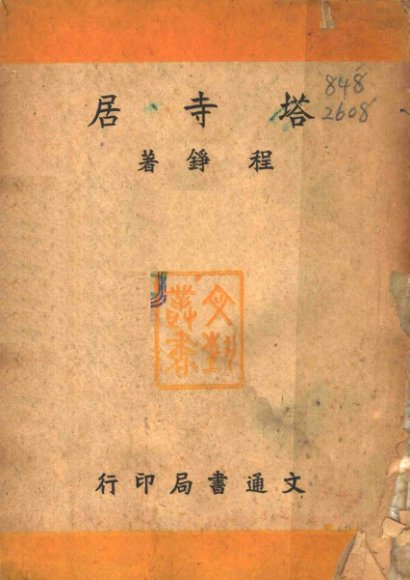 848
2608
塔寺居
程錚著
文
叢書
文通書局印行